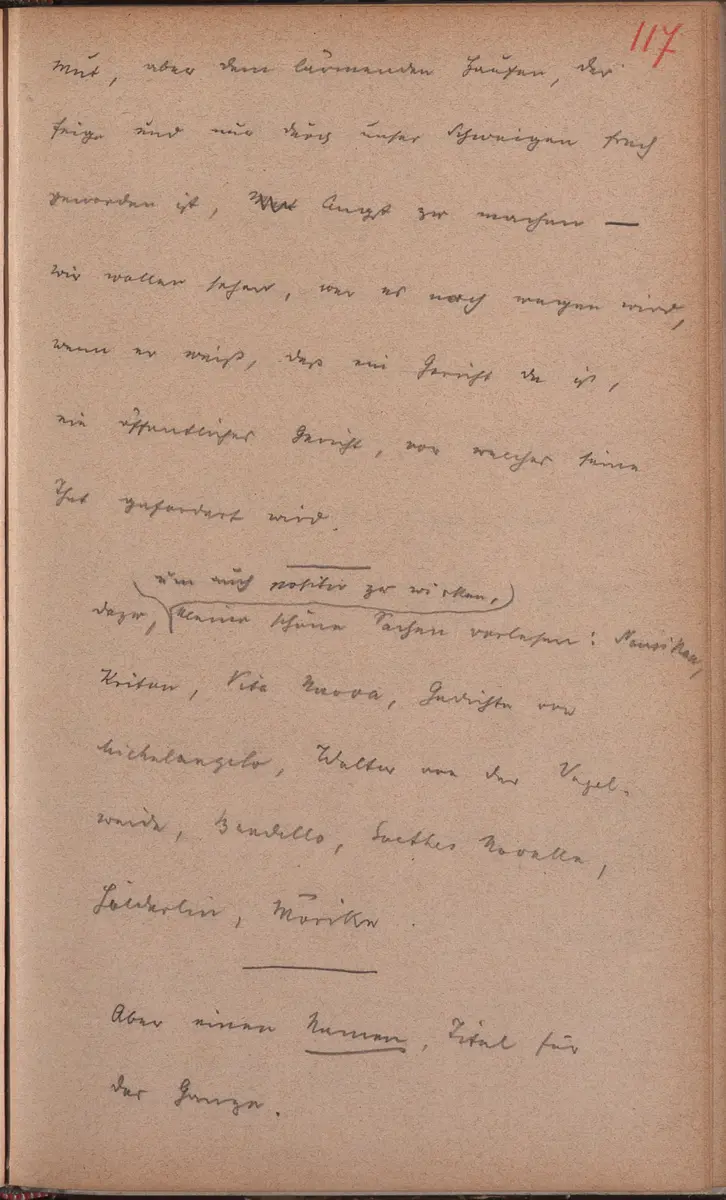 117
Mut, aber dem lärmenden Haufen, der
feige und nur durch unser Schweigen frech
geworden ist, Mut Angst zu machen —
wir wollen sehen, wer es noch wagen wird,
wenn er weiß, daß ein Gericht da ist,
ein öffentliches Gericht, vor welches seine
That gefordert wird.
um auch positiv zu wirken,
dazu, kleine schöne Sachen vorlesen: Nausikaa,
Kriton, Vita Nuova, Gedichte von
Michelangelo, Walter von der Vogel-
weide, Bandello, Goethes Novelle,
Hölderlin, Mörike.
Aber einen Namen, Titel für
das Ganze.